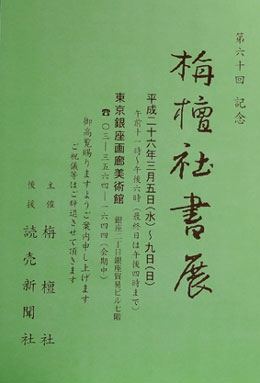 第六十回 記念
栴檀社書展
平成二十六年三月五日(水)～九日(日)
午前十一時～午後六時(最終日は午後四時まで)
東京銀座画廊美術館 銀座二丁目銀座貿易ビル七階
☎〇三―三五六四―一六四四(会期中)
御高覧賜りますようご案内申し上げます
ご祝儀等はご辞退させて頂きます
主催 栴檀社
後援 読売新聞社